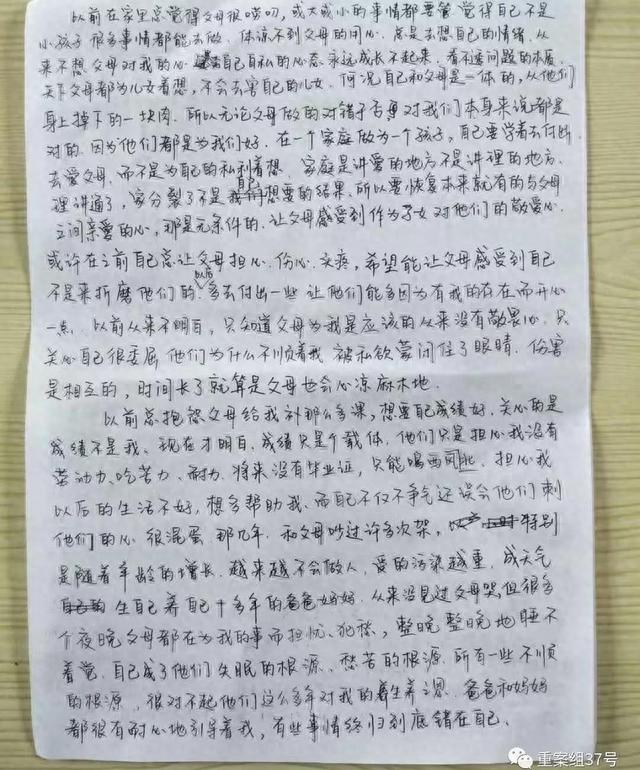 以前在家里总觉得父母很唠叨，或大或小的事情都要管 觉得自己不是
小孩子 很多事情都能去做. 体谅不到父母的用心. 总是去想自己的情绪. 从
来不想父母对我的心 自己自私的心态 永远成长不起来. 看不透问题的本质.
天下父母都为儿女着想，不会去害自己的儿女. 何况自己和父母是一体的，从他们
身上掉下的一块肉. 所以无论父母做的对错于否 对我们本身来说都是
对的. 因为他们都是为我们好. 在一个家庭做为一个孩子，自己要学着去付出.
去爱父母. 而不是为自己的私利着想. 家庭是讲爱的地方不是讲理的地方.
理讲通了，家分裂了不是自己想要的结果. 所以要恢复本来就有的与父母
之间亲爱的心，那是无条件的. 让父母感受到作为子女对他们的敬爱心.
或许在之前自己总让父母担心. 伤心. 头疼，希望能让父母感受到自己
不是来折磨他们的. 以后多去付出一些 让他们能多因为有我的存在而开心
一点. 以前从来不明白，只知道父母为我是应该的从来没有敬畏心. 只
关心自己很委屈 他们为什么不顺着我 被私欲蒙闭住了眼睛. 伤害
是相互的，时间长了就算是父母也会心凉麻木地.
以前总抱怨父母给我补那么多课，想要自己成绩好. 关心的是
成绩不是我. 现在才明白. 成绩只是个载体. 他们只是担心我没有
劳动力、吃苦力、耐力. 将来没有毕业证，只能喝西北风. 担心我
以后的生活不好，想多帮助我. 而自己不仅不争气还误会他们刺
他们的心. 很混蛋. 那几年. 和父母吵过许多次架，特别
是随着年龄的增长. 越来越不会做人，爱的污染越重. 成天气
生自己养自己十多年的爸爸妈妈. 从来没见过父母哭，但很多
个夜晚父母都在为我的事而担忧、犯愁，整晚整晚地睡不
着觉. 自己成了他们失眠的根源、愁苦的根源. 所有一些不顺
的根源，很对不起他们这么多年对我的养生养之恩. 爸爸和妈妈
都很有耐心地引导着我，有些事情终归到底错在自己.
重案组37号